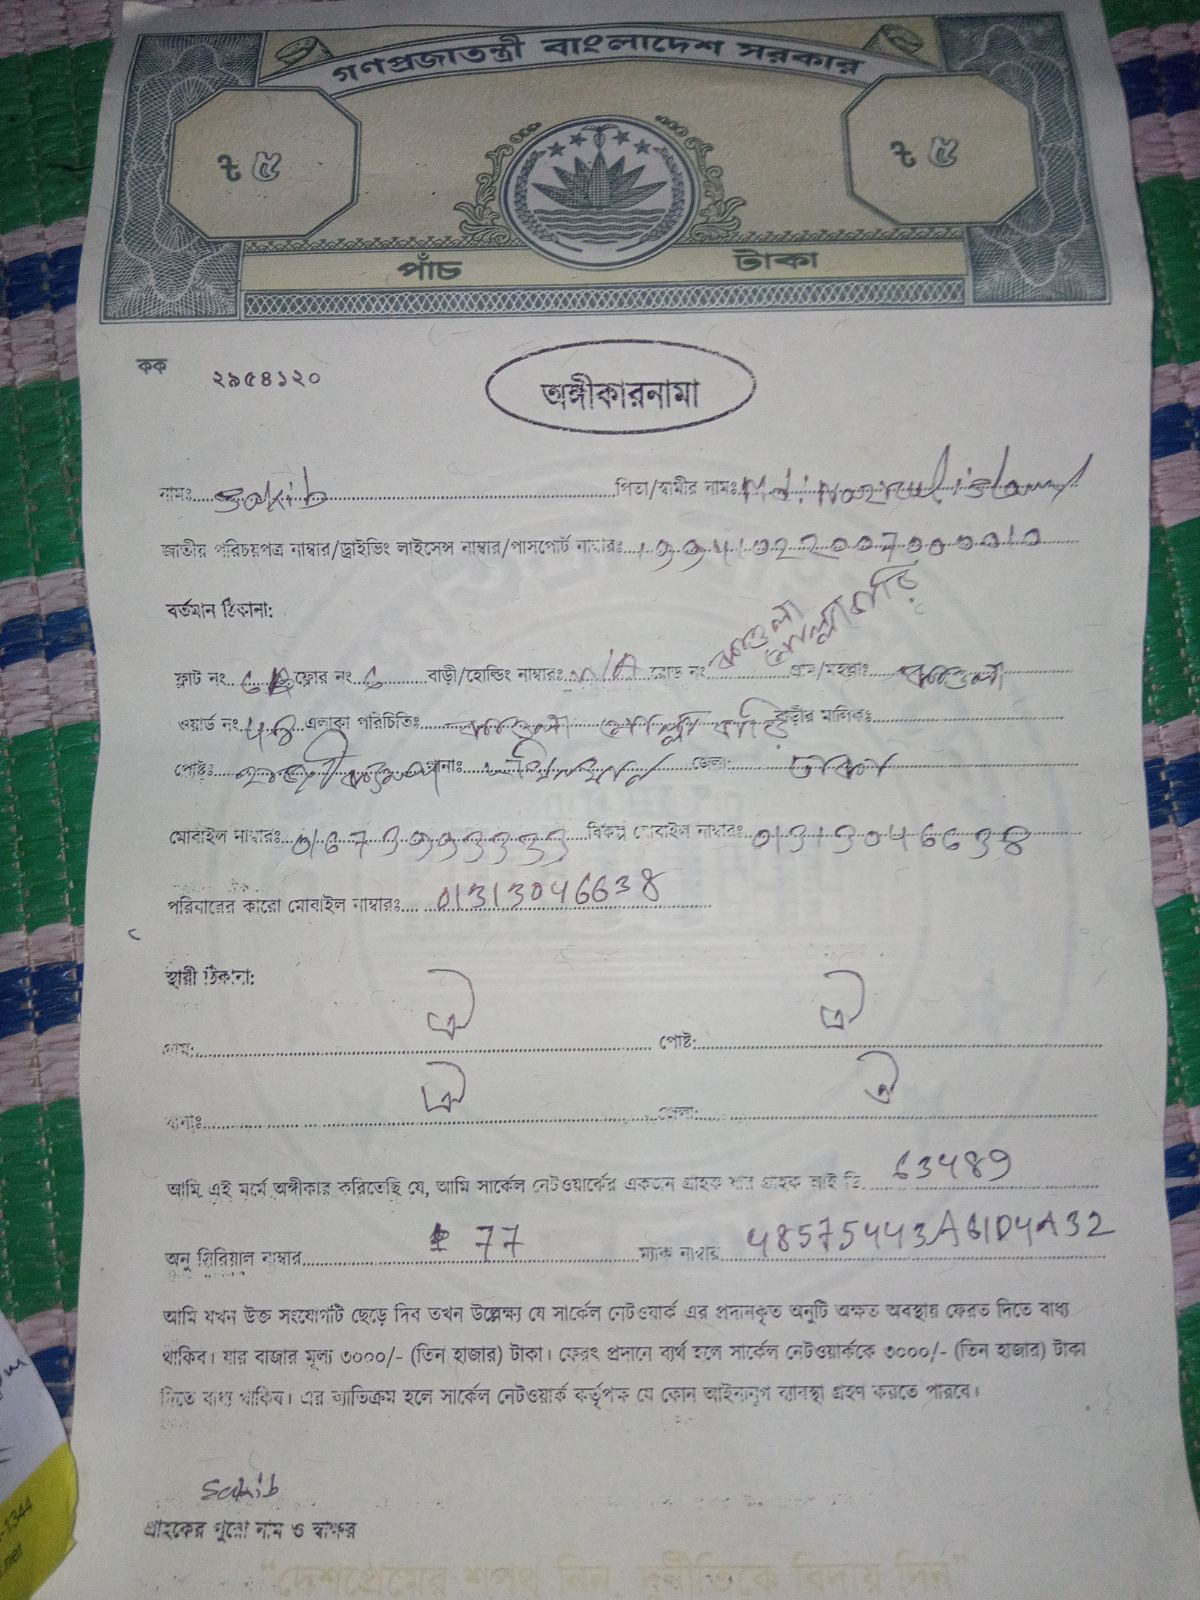 গণপ্রজাতন্ত্রী বাংলাদেশ সরকার
৳ ৫ ৳ ৫
পাঁচ টাকা
কক ২৯৫৪১২০
অঙ্গীকারনামা
নামঃ Sakib পিতা/স্বামীর নামঃ Md: Nazrul islam
জাতীয় পরিচয়পত্র নাম্বার/ড্রাইভিং লাইসেন্স নাম্বার/পাসপোর্ট নাম্বারঃ
বর্তমান ঠিকানা:
ফ্লাট নং ফ্লোর নং 6 বাড়ী/হোল্ডিং নাম্বারঃ N/A রোড নং গ্রাম/মহল্লাঃ কাওলা
ওয়ার্ড নং এলাকা পরিচিতিঃ কাওলা মোল্লা বাড়ি বাড়ীর মালিকঃ
পোষ্টঃ থানাঃ জেলা: ঢাকা
মোবাইল নাম্বারঃ বিকল্প মোবাইল নাম্বারঃ 01313046638
পরিবারের কারো মোবাইল নাম্বারঃ 01313046638
স্থায়ী ঠিকানা:
গ্রাম: ঐ পোষ্ট: ঐ
থানাঃ ঐ জেলা: ঐ
আমি এই মর্মে অঙ্গীকার করিতেছি যে, আমি সার্কেল নেটওয়ার্কের একজন গ্রাহক যার গ্রাহক আই ডি 63489
অনু সিরিয়াল নাম্বার 77 ম্যাক নাম্বার 48575443A61D4A32
আমি যখন উক্ত সংযোগটি ছেড়ে দিব তখন উল্লেক্ষ্য যে সার্কেল নেটওয়ার্ক এর প্রদানকৃত অনুটি অক্ষত অবস্থায় ফেরত দিতে বাধ্য
থাকিব। যার বাজার মূল্য ৩০০০/- (তিন হাজার) টাকা। ফেরৎ প্রদানে ব্যর্থ হলে সার্কেল নেটওয়ার্ককে ৩০০০/- (তিন হাজার) টাকা
দিতে বাধ্য থাকিব। এর ব্যাতিক্রম হলে সার্কেল নেটওয়ার্ক কর্তৃপক্ষ যে কোন আইনানুগ ব্যাবস্থা গ্রহণ করতে পারবে।
Sakib
গ্রাহকের পুরো নাম ও স্বাক্ষর
"দেশপ্রেমের শপথ নিন, দুর্নীতিকে বিদায় দিন"
-1344